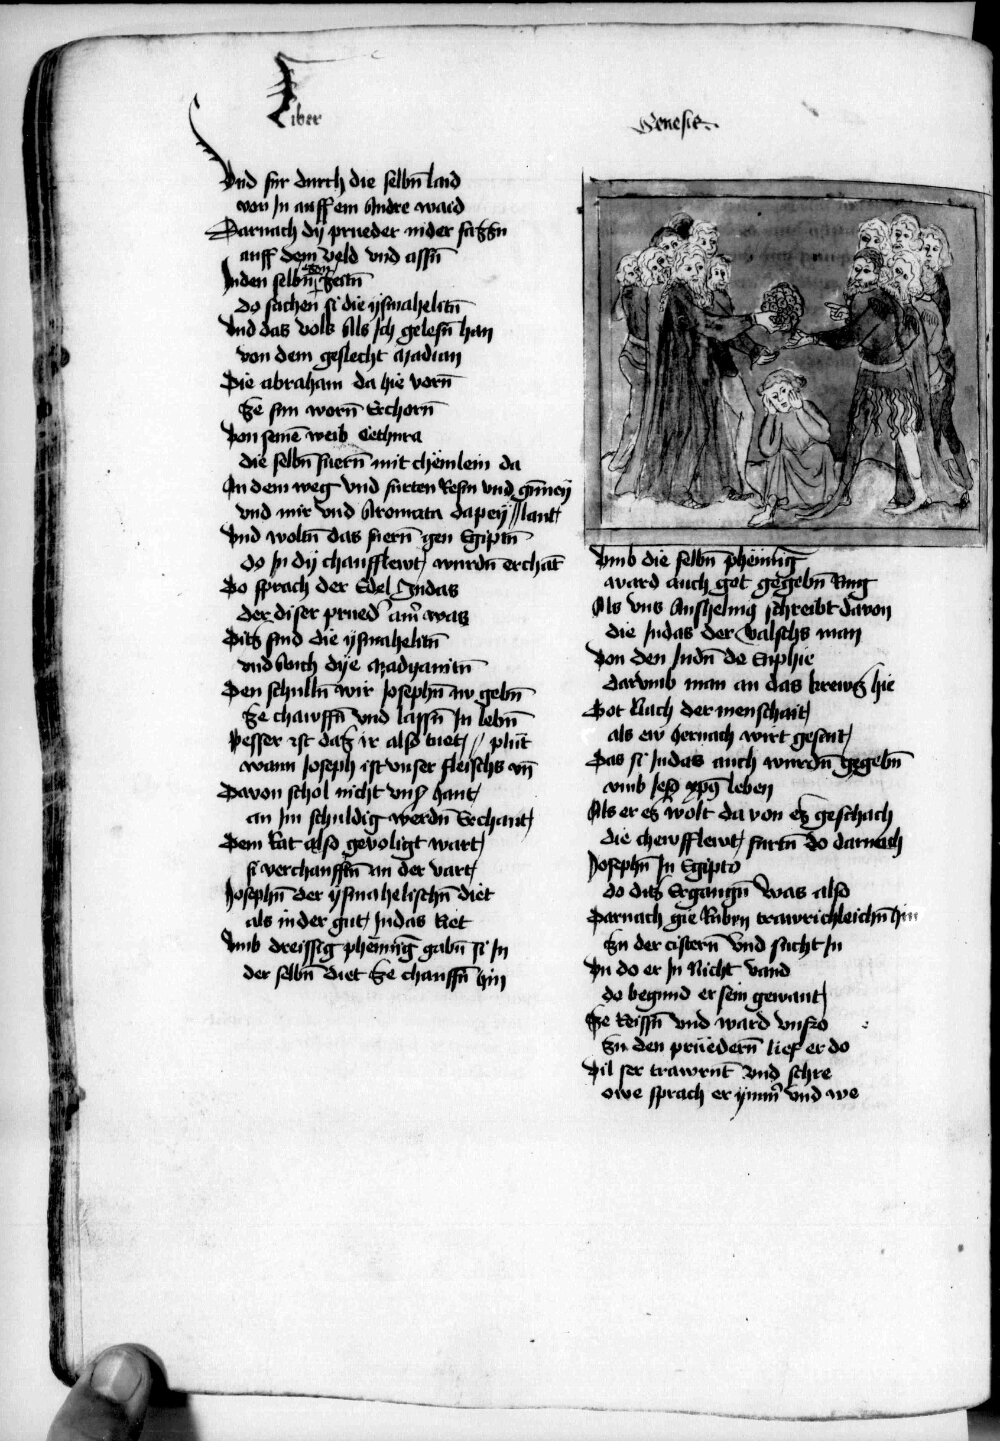 Liber
Genesis
Vnd fur durch die selbñ laid
von In auff ein Andre waid
Darnach dy prueder nider sazzñ
auff dem veld vnd assñ
Inden selbñ zeitñ
do sachen si die ysmahelitñ
Vnd das volk Als Ich gelesñ han
von dem geslecht Madian
Die abraham da hie vorñ
Ze sun worñ Erchorñ
Von seinē weib Cethura
die selbñ fuerñ mit chemlein da
In dem weg vnd furten Resin vnd
vnd mir vnd Aromata dapey // lant
Vnd woltñ das fuerñ gen Egiptñ
do In dy chaufflewt wurdñ erchāt
Do sprach der Edel Judas
der diser prued' was
Ditz sind die ysmahelitñ
vnd Auch dye Madyanitñ
Den schullñ wir Josephñ gebñ
Ze chawffñ vnd lassñ In lebñ
Pesser ist daz ir also tuet // plūt
wann Joseph ist vnser fleischs vñ
Davon schol nicht vnser hant
an Im schuldig werdñ Erchant
Dem Rat also gevoligt wart
si verchaufftñ an der vart
Josephñ der ysmahelischñ diet
als in der gut Judas Riet
Vmb dreissig phēnīg gabñ si In
der selbñ diet Ze chauffñ hin
Vmb die selbñ phēnnīg
ward auch got gegebñ Ring
Als vns Anshelmg schreibt davon
die Judas der valschs man
Von den Judñ do Enphie
darvmb man an das krewtz hie
Got Nach der menschait
als ew hernach wirt gesait
Das si Judas auch wurdñ gegebñ
vmb leben
Als er ez wolt da von ez geschach
die chewfflewt furtñ do darnach
Josephñ In Egipto
do ditz Ergangñ was also
Darnach gie Rubyn trawrichleichñ hin
Zu der cisterñ vnd sucht In
Vn do er In Nicht vand
do begund er sein gewant
Ze Reissñ vnd ward vnfro
Zu den prüederñ lief er do
Vil ser trawrnt vnd schre
owe sprach er vnd we